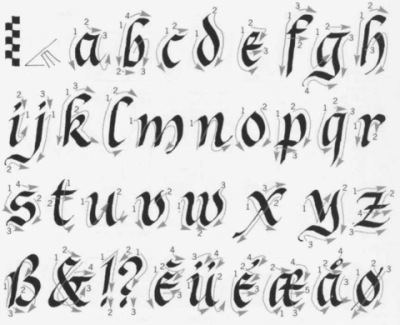 a b c d e f g h
i j k l m n o p q r
s t u v w x y z
ß & ! ? ü é æ å ø